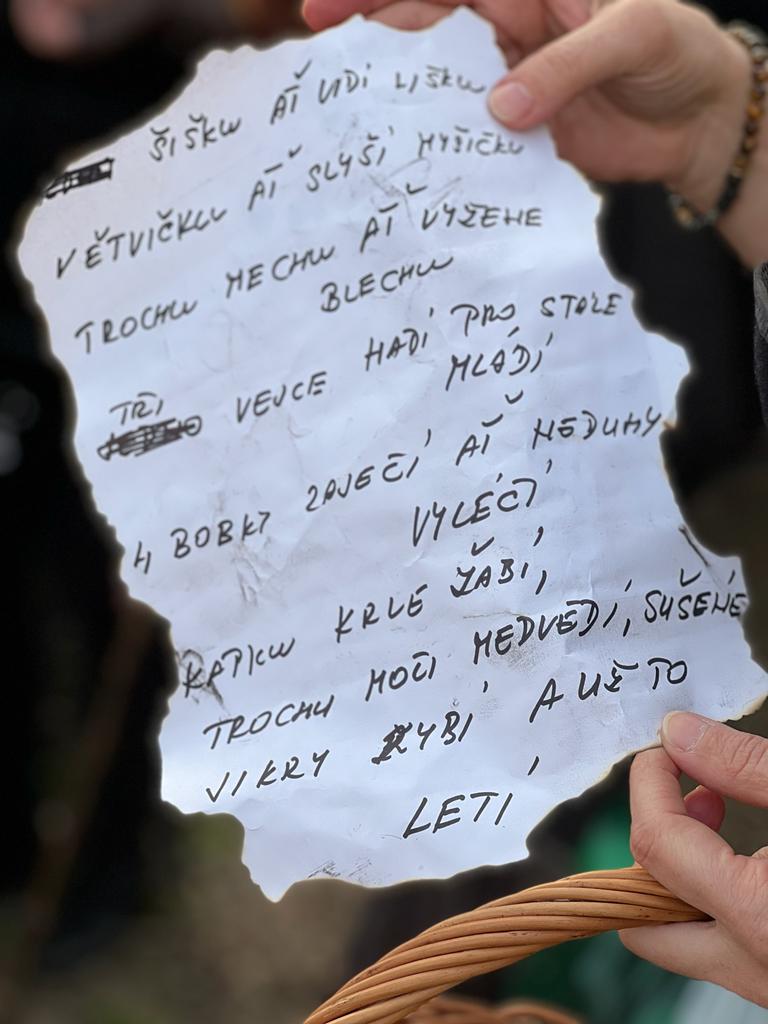 ŠIŠKU AŤ VIDÍ LIŠKU
VĚTVIČKU AŤ SLYŠÍ MYŠIČKU
TROCHU MECHU AŤ VYŽENE
BLECHU
TŘI VEJCE HADÍ PRO STALE
MLÁDÍ
4 BOBKY ZAJEČÍ AŤ NEDUHY
VYLÉČÍ
KAPKU KRVE ŽABÍ,
TROCHU MOČI MEDVĚDÍ, SUŠENÉ
JIKRY RYBÍ A UŽ TO
LETÍ